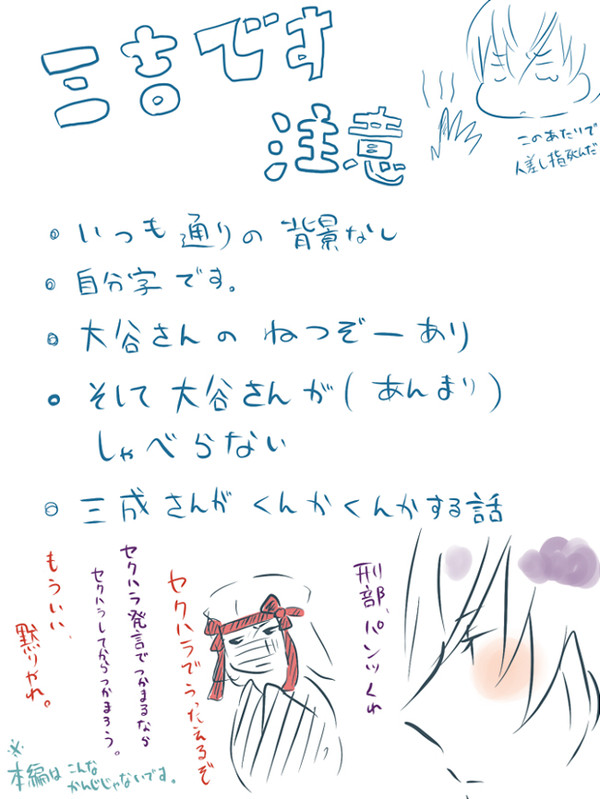 三吉です
注意
このあたりで
人差し指死んだ
いつも通りの 背景なし
自分字です。
大谷さんの ねつぞーあり
そして 大谷さんが(あんまり)
しゃべらない
三成さんが くんかくんかする話
刑部、パンツくれ
セクハラでうったえるぞ
セクハラ発言でつかまるなら
セクハラしてからつかまろう。
もういい、
黙りやれ。
※
本編は こんな
かんじじゃないです。